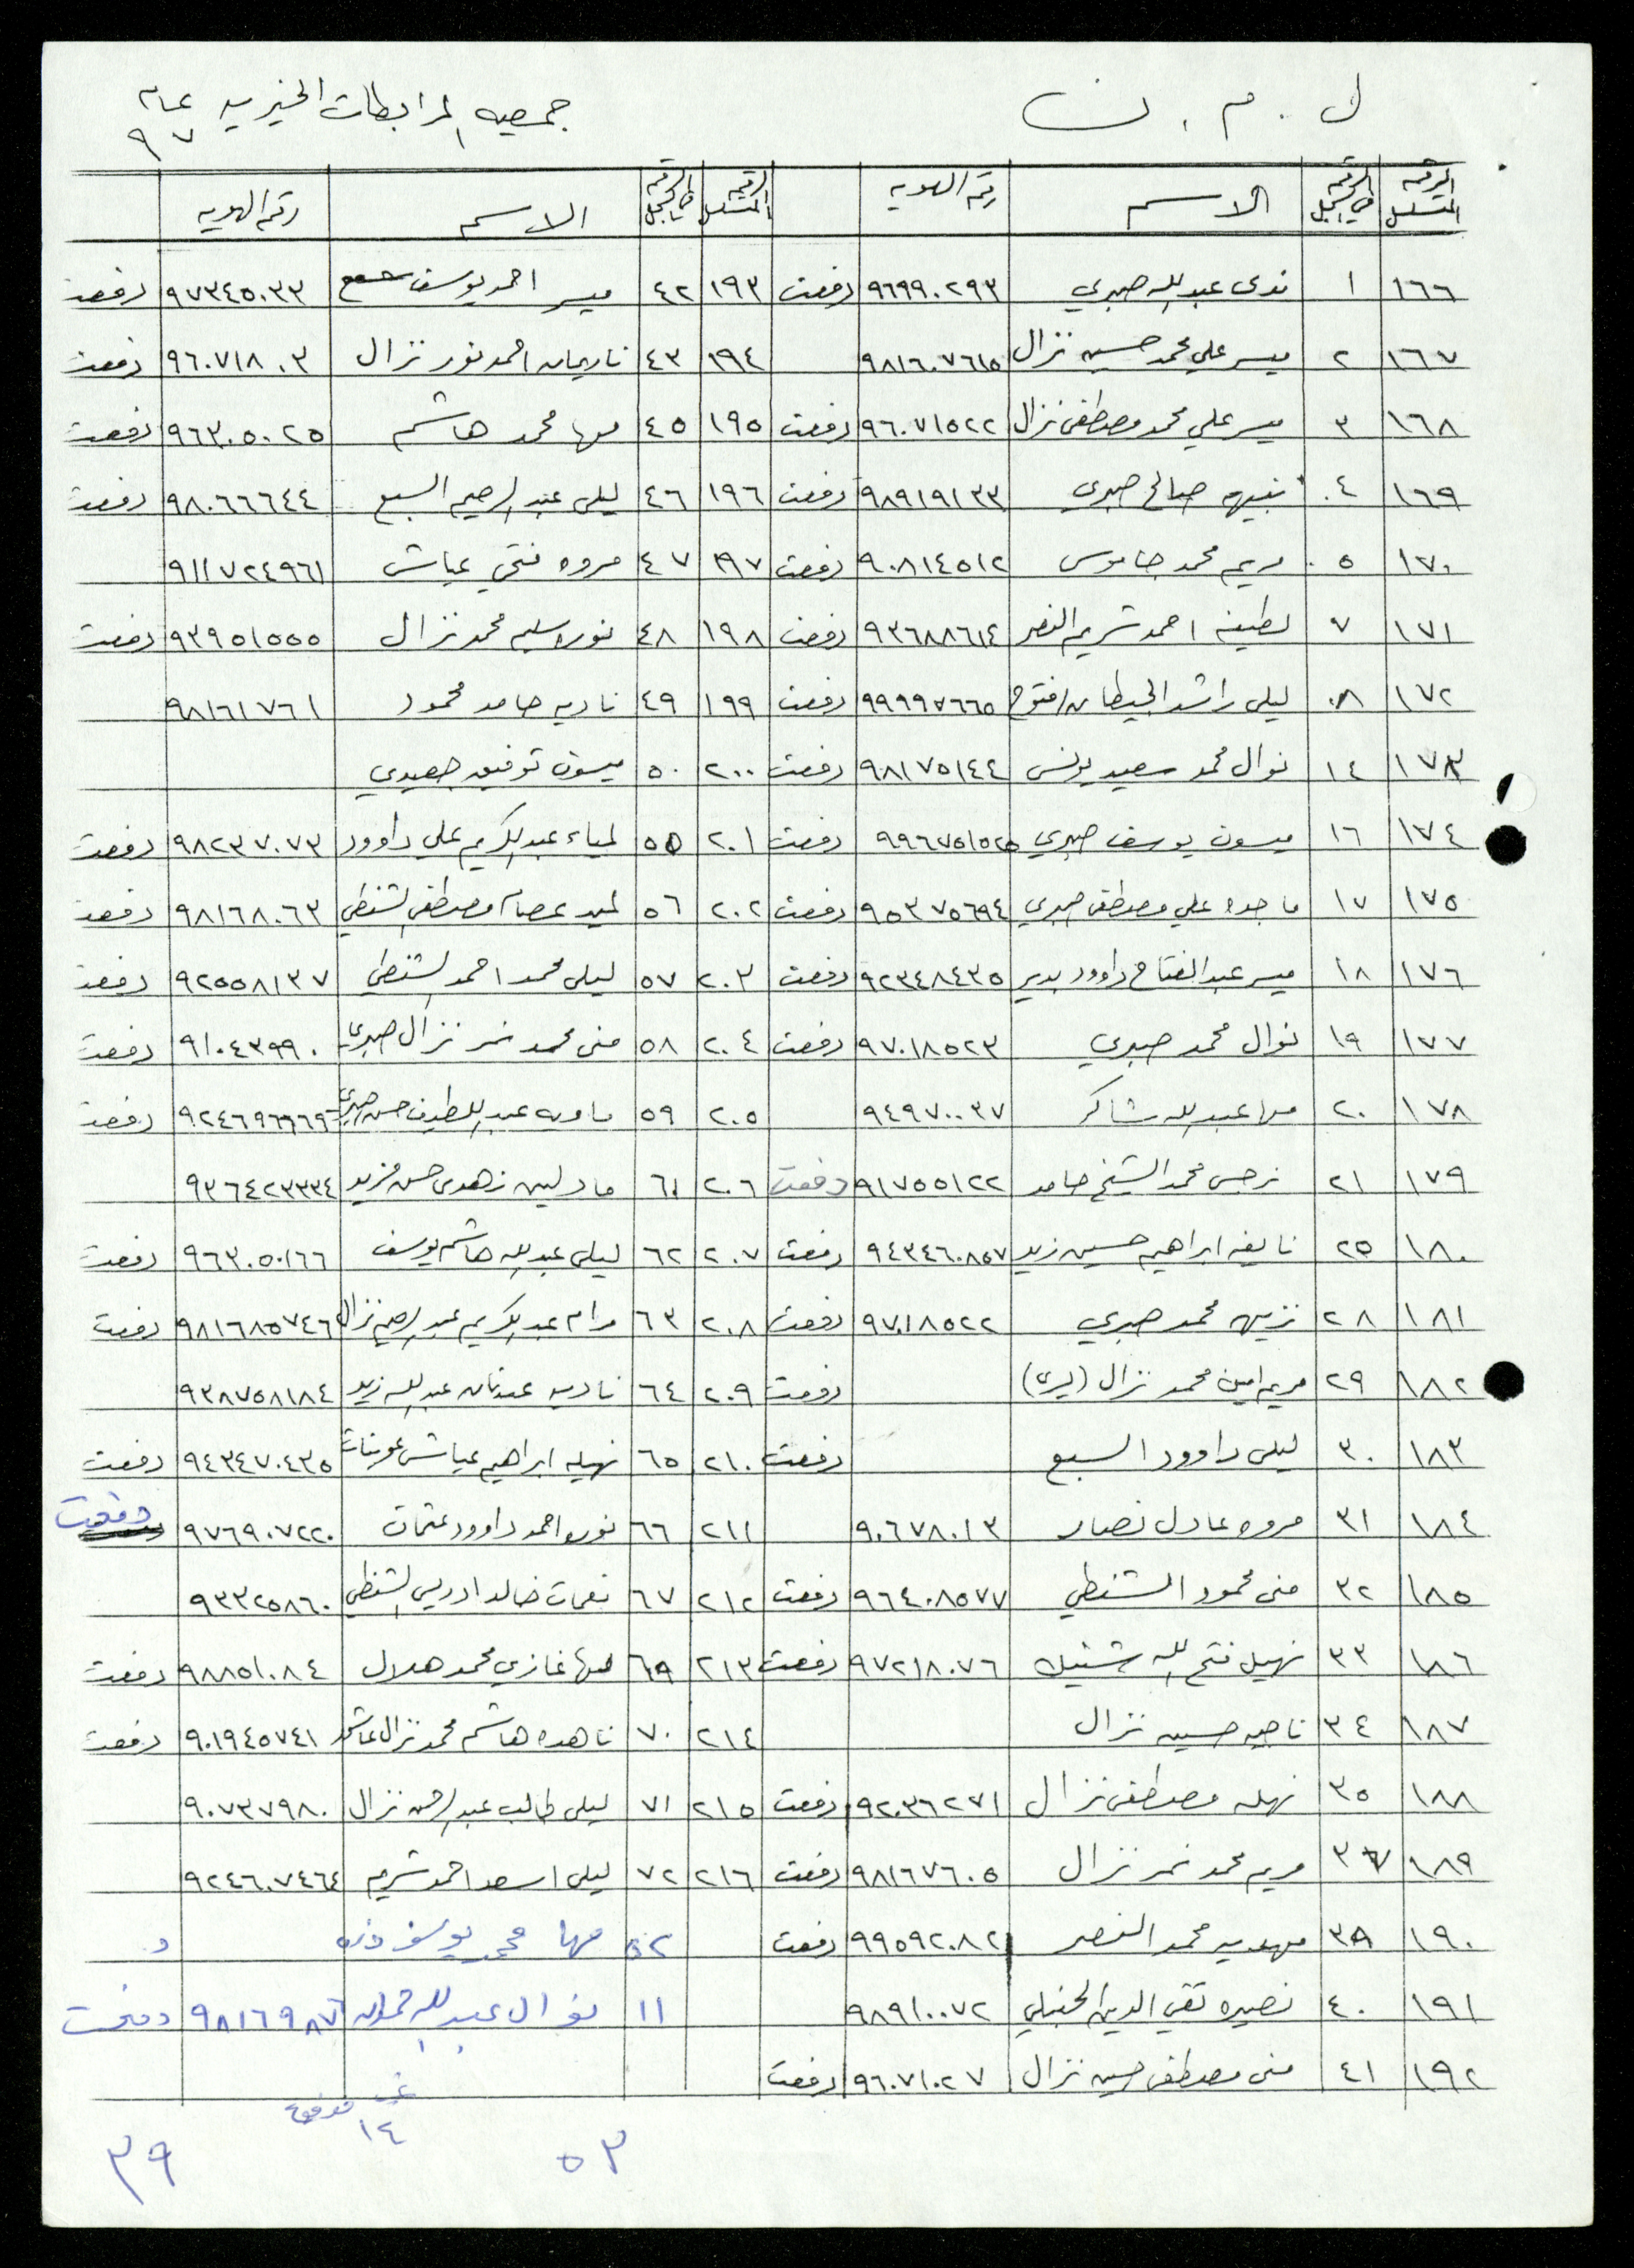 ل . م . ن جمعيه المرابطات الخيريه عام ٩٧
الرقم المتسلسل الرقم في السجل الاسم رقم الهويه الرقم المتسلسل الرقم في السجل الاسم رقم الهويه
١٦٦ ١ ندى عبد الله صبري ٩٦٩٩٠٢٩٣ دفعت ١٩٣ ٤٢ ميسر احمد يوسف ٩٧٣٤٥٠٣٣ دفعت
١٦٧ ٢ ميسر علي محمد حسين نزال ٩٨١٦٠٧٦١٥ ١٩٤ ٤٣ ناريمان احمد نور نزال ٩٦٠٧١٨٠٣ دفعت
١٦٨ ٣ ميسر علي محمد مصطفى نزال ٩٦٠٧١٥٢٢ دفعت ١٩٥ ٤٥ مها محمد هاشم ٩٦٣٠٥٠٢٥ دفعت
١٦٩ ٤ نبيهه صالح صبري ٩٨٩١٩١٣٣ دفعت ١٩٦ ٤٦ ليلى عبد الرحيم السبع ٩٨٠٦٦٦٤٤ دفعت
١٧٠ ٥ مريم محمد جاموس ٩٠٨١٤٥١٢ دفعت ١٩٧ ٤٧ مروه فتحي عياش ٩١١٧٢٤٩٦١
١٧١ ٧ لطيفه احمد شريم النصر ٩٣٦٨٨٦١٤ دفعت ١٩٨ ٤٨ نوره سليم محمد نزال ٩٣٩٥١٥٥٥ دفعت
١٧٢ ٨ ليلى راشد الجيطان ٩٩٩٩٧٦٦٥ دفعت ١٩٩ ٤٩ ناديه حامد محمود ٩٨١٦١٧٦١
١٧٣ ١٤ نوال محمد سعيد يونس ٩٨١٧٥١٤٤ دفعت ٢٠٠ ٥٠ ميسون توفيق جعيدي
١٧٤ ١٦ ميسون يوسف صبري ٩٩٦٧٥١٥٢٥ دفعت ٢٠١ ٥٥ لمياء عبد الكريم علي داوود ٩٨٢٣٧٠٧٣ دفعت
١٧٥ ١٧ ماجده علي مصطفى صبري ٩٥٣٧٥٦٩٤ دفعت ٢٠٢ ٥٦ عصام مصطفى الشنطي ٩٨١٦٨٠٦٣ دفعت
١٧٦ ١٨ ميسر عبد الفتاح داوود بدير ٩٢٣٤٨٤٣٥ دفعت ٢٠٣ ٥٧ ليلى محمد احمد الشنطي ٩٢٥٥٨١٣٧ دفعت
١٧٧ ١٩ نوال محمد صبري ٩٧٠١٨٥٢٣ دفعت ٢٠٤ ٥٨ منى محمد نمر نزال صبري ٩١٠٤٣٩٩٠ دفعت
١٧٨ ٢٠ مها عبد الله شاكر ٩٤٩٧٠٠٣٧ ٢٠٥ ٥٩ ماويه عبد اللطيف حسن صبري دفعت
١٧٩ ٢١ نرجس محمد الشيخ حامد ٩١٧٥٥١٢٢ دفعت ٢٠٦ ٦١ مادلين زهدي حسن فريد ٩٣٦٤٢٣٣٣٤
١٨٠ ٢٥ نايفه ابراهيم حسين زيد ٩٤٣٤٦٠٨٥٧ دفعت ٢٠٧ ٦٢ ليلى عبد الله هاشم يوسف ٩٦٣٠٥٠١٦٦ دفعت
١٨١ ٢٨ نزيهه محمد صبري ٩٧٠١٨٥٢٢ دفعت ٢٠٨ ٦٣ مرام عبد الكريم عبد الرحيم نزال ٩٨١٦٨٥٧٤٦ دفعت
١٨٢ ٢٩ مريم امين محمد نزال (يسرى) دفعت ٢٠٩ ٦٤ ناديه عدنان عبد الله زيد ٩٣٨٧٥٨١٨٤
١٨٣ ٣٠ ليلى داوود السبع دفعت ٢١٠ ٦٥ نهيله ابراهيم عياش عوينات ٩٤٣٤٧٠٤٣٥ دفعت
١٨٤ ٣١ مروه عادل نصار ٩٠٦٧٨٠١٣ ٢١١ ٦٦ نوره احمد داوود عثمان ٩٧٦٩٠٧٢٢٠ دفعت
١٨٥ ٣٢ منى محمود الشنطي ٩٦٤٠٨٥٧٧ دفعت ٢١٢ ٦٧ نعمات خالد ادريس الشنطي ٩٣٣٢٥٨٦٠
١٨٦ ٣٣ نهيل فتح الله شتيك ٩٧٢١٨٠٧٦ دفعت ٢١٣ ٦٩ مها غازي محمد هلال ٩٨٨٥١٠٨٤ دفعت
١٨٧ ٣٤ ناجيه حسين نزال ٢١٤ ٧٠ ناهده هاشم محمد نزال ٩٠١٩٤٥٧٤١ دفعت
١٨٨ ٣٥ نهله مصطفى نزال ٩٢٠٣٦٢٧١ دفعت ٢١٥ ٧١ ليلى طالب عبد الرحمن نزال ٩٠٧٣٧٩٨٠
١٨٩ ٣٧ مريم محمد نمر نزال ٩٨١٦٧٦٠٥ دفعت ٢١٦ ٧٢ ليلى اسعد احمد شريم ٩٢٤٦٠٧٤٦٤
١٩٠ ٣٨ مهديه محمد النصر ٩٩٥٩٢٠٨٢ دفعت ٥٢ مها محمد يوسف د
١٩١ ٤٠ نصيره تقي الدين الحنبلي ٩٨٩١٠٠٧٢ ١١ نوال عبد الرحمن ٩٨١٦٩٨٧٦ دفعت
١٩٢ ٤١ منى مصطفى حسين نزال ٩٦٠٧١٠٢٧ دفعت
١٤
٥٣ ٣٩